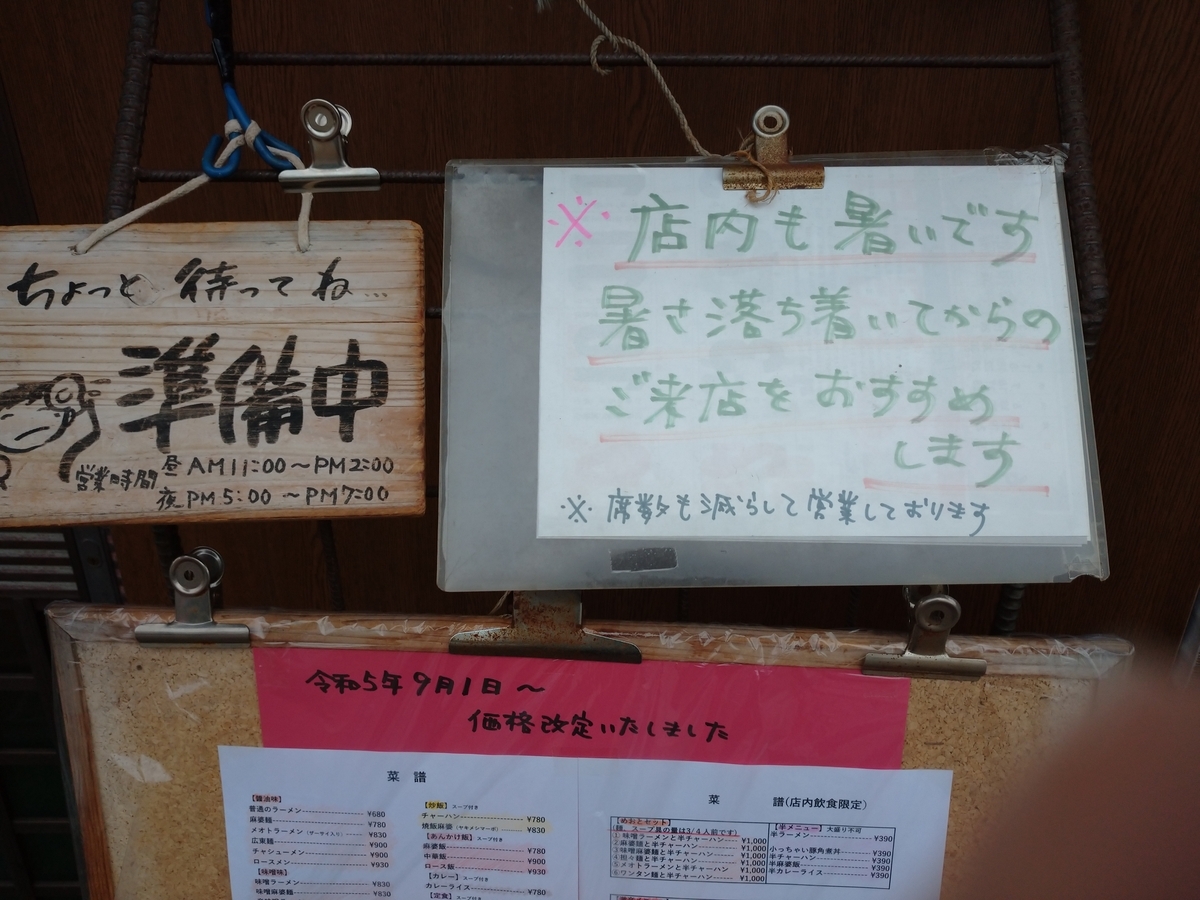 ちょっと 待ってね…
準備中
営業時間 昼 AM11:00～PM2:00
夜 PM5:00～PM7:00
※ 店内も暑いです
暑さ落ち着いてからの
ご来店をおすすめ
します
※ 席数も減らして営業しております
令和5年9月1日～
価格改定いたしました
菜 譜
【醤油味】
普通のラーメン ¥680
麻婆麺 ¥780
メオトラーメン (ザーサイ入り) ¥830
広東麺 ¥900
チャシューメン ¥900
ロースメン ¥930
【味噌味】
味噌ラーメン ¥830
味噌麻婆麺 ¥830
【炒飯】スープ付き
チャーハン ¥780
焼飯麻婆(ヤキメシマーボ) ¥830
【あんかけ飯】スープ付き
麻婆飯 ¥780
中華飯 ¥900
ロース飯 ¥930
【カレー】スープ付き
カレーライス ¥780
【定食】スープ付き
菜 譜(店内飲食限定)
【めおとセット】
(麺、スープ具の量は3/4人前です)
1.味噌ラーメンと半チャーハン ¥1,000
2.麻婆麺と半チャーハン ¥1,000
3.味噌麻婆麺と半チャーハン ¥1,000
4.担々麺と半チャーハン ¥1,000
5.メオトラーメンと半チャーハン ¥1,000
6.ワンタン麺と半チャーハン ¥1,000
【半メニュー】大盛り不可
半ラーメン ¥390
小っちゃい豚角煮丼 ¥390
半チャーハン ¥390
半麻婆飯 ¥390
半カレーライス ¥390